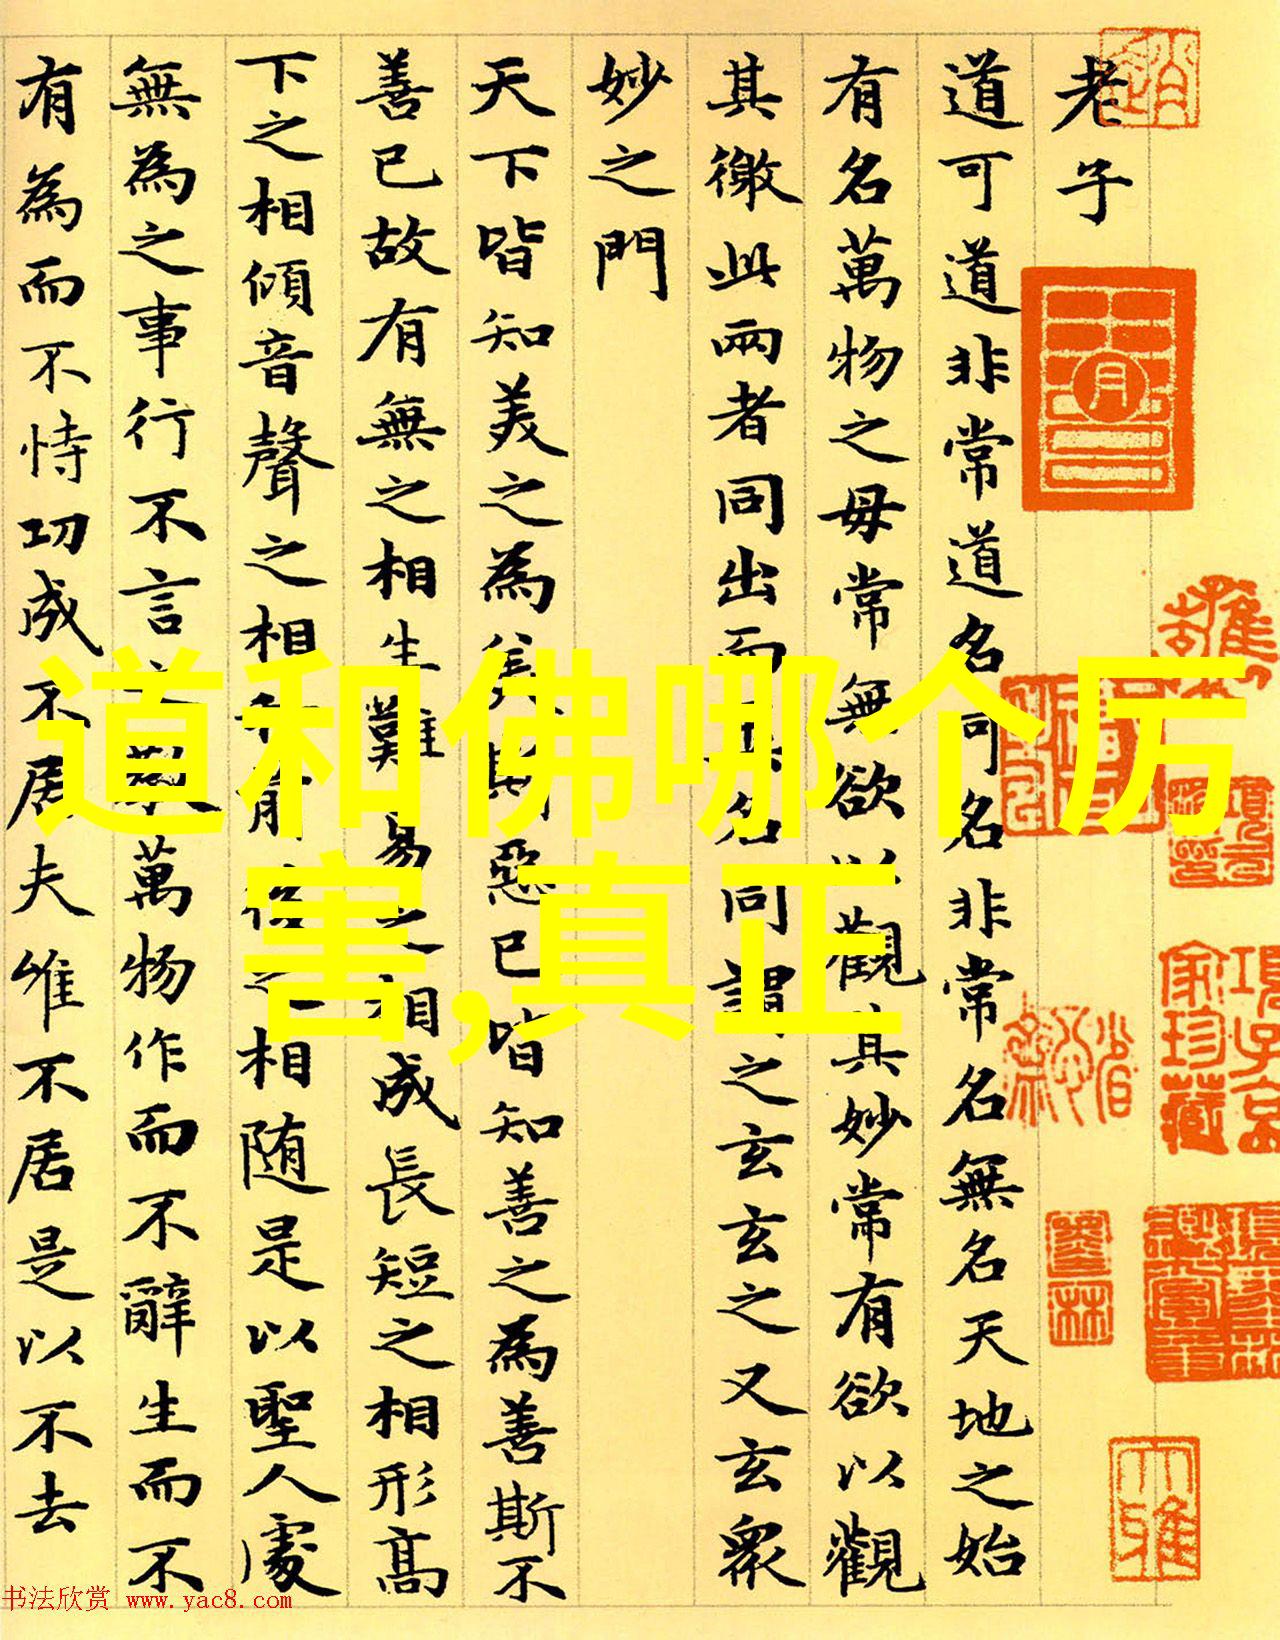 老子
道可道非常道名可名非常名無名天地之始
有名萬物之母常無欲以觀其妙常有欲以觀
其徼此兩者同出而異名同謂之玄玄之又玄衆
妙之門
天下皆知美之為美斯惡已皆知善之為善斯不
善已故有無之相生難易之相成長短之相形高
下之相傾音聲之相和前後之相随是以聖人處
無為之事行不言之教萬物作而不辭生而不
有為而不恃功成不居夫唯不居是以不去
道和佛哪个厉
害,真正
項子京
家珍藏
大雅
书法欣赏 www.yac8.com